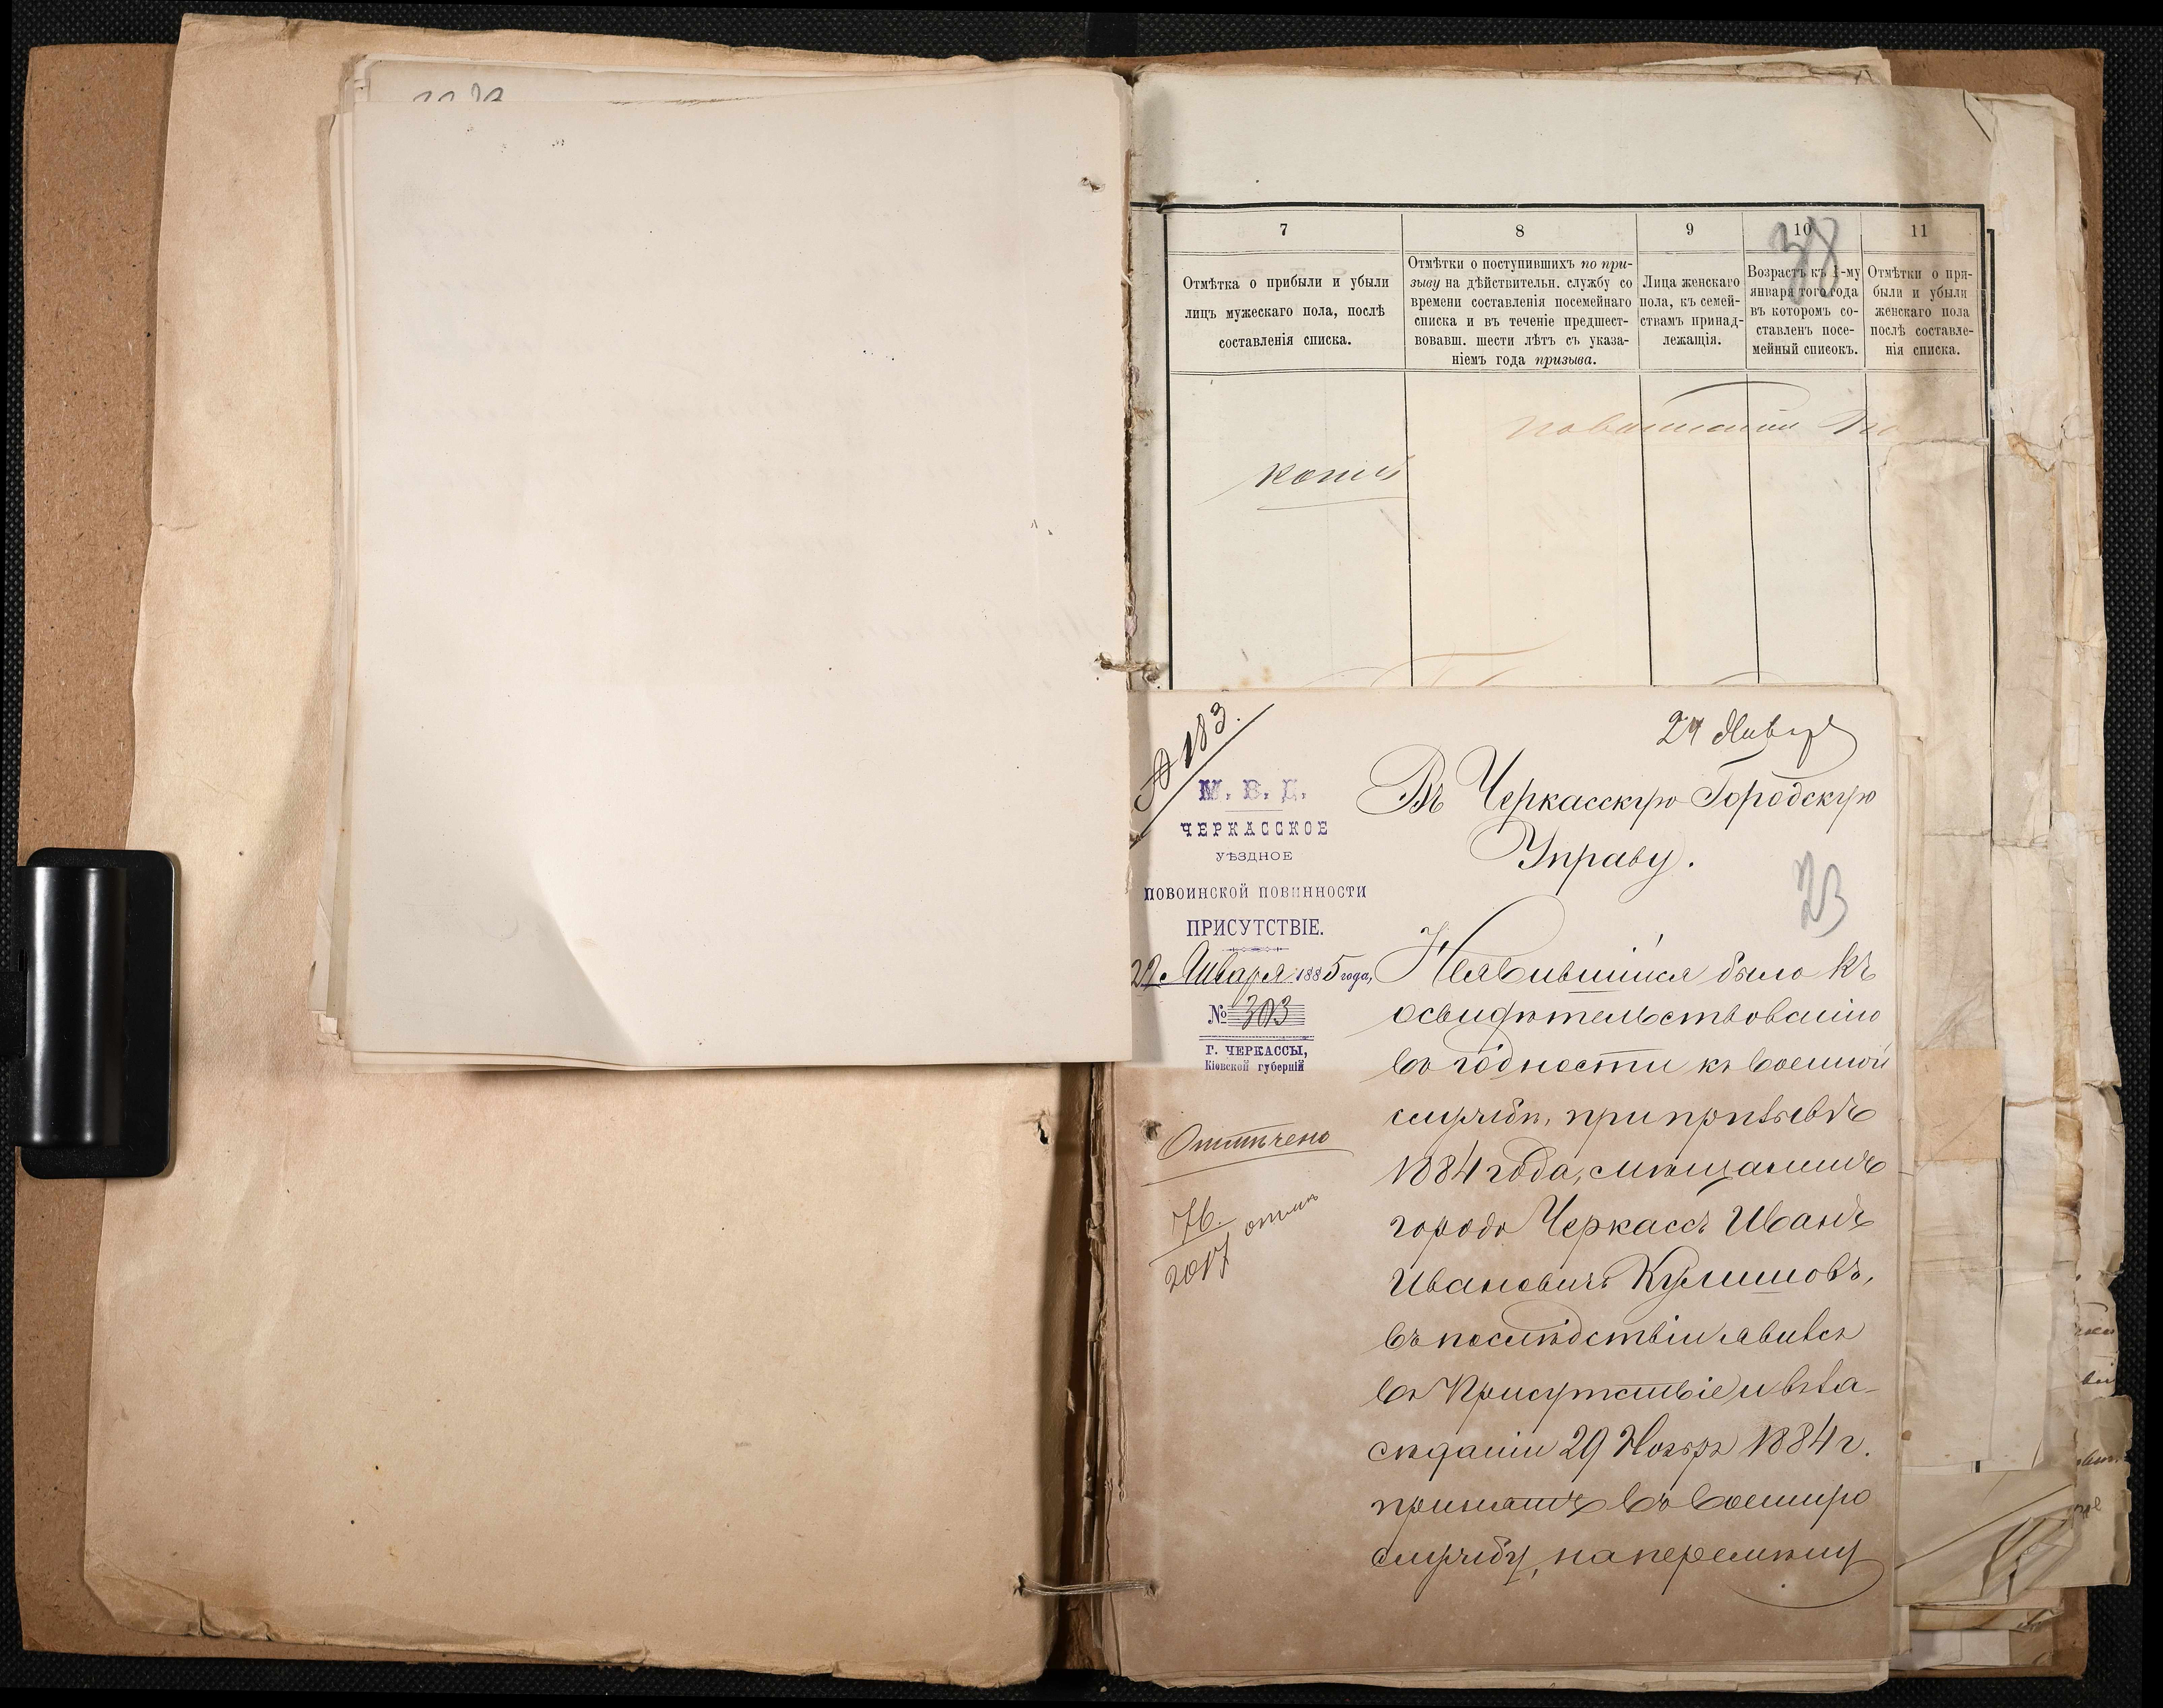 7
8
9
10
11
38
Отмѣтка о прибыли и убыли
лицъ мужескаго пола, послѣ
составленія списка.
Отмѣтки о поступившихъ по при-
зыву на дѣйствительн. службу со
времени составленія посемейнаго
списка и въ теченіе предшест-
вовавш. шести лѣтъ съ указа-
ніемъ года призыва.
Лица женскаго
пола, къ семей-
ствамъ принад-
лежащія.
Возрастъ къ 1-му
января того года
въ котором со-
ставленъ посе-
мейный списокъ.
Отмѣтки о при-
были и убыли
женскаго пола
послѣ составле-
нія списка.
№ 183.
24 Января
М. В. Д.
ЧЕРКАССКОЕ
УѢЗДНОЕ
ПОВОИНСКОЙ ПОВИННОСТИ
ПРИСУТСТВІЕ.
22 Января 1885 года,
№ 303
Г. ЧЕРКАССЫ,
Кіовской губерній
Отмѣчено
76.
2017
Въ Черкасскую Городскую
Управу.
23
Неявившійся было къ
освидѣтельствованію
въ годности къ военной
службѣ, при призывѣ
1884 года, мѣщанинъ
города Черкассъ Иванъ
Ивановичъ Кулишовъ,
въ послѣдствіи явился
въ Присутствіе и въ за-
сѣданіи 29 Ноября 1884 г.
принятъ въ военную
службу, на перемѣну